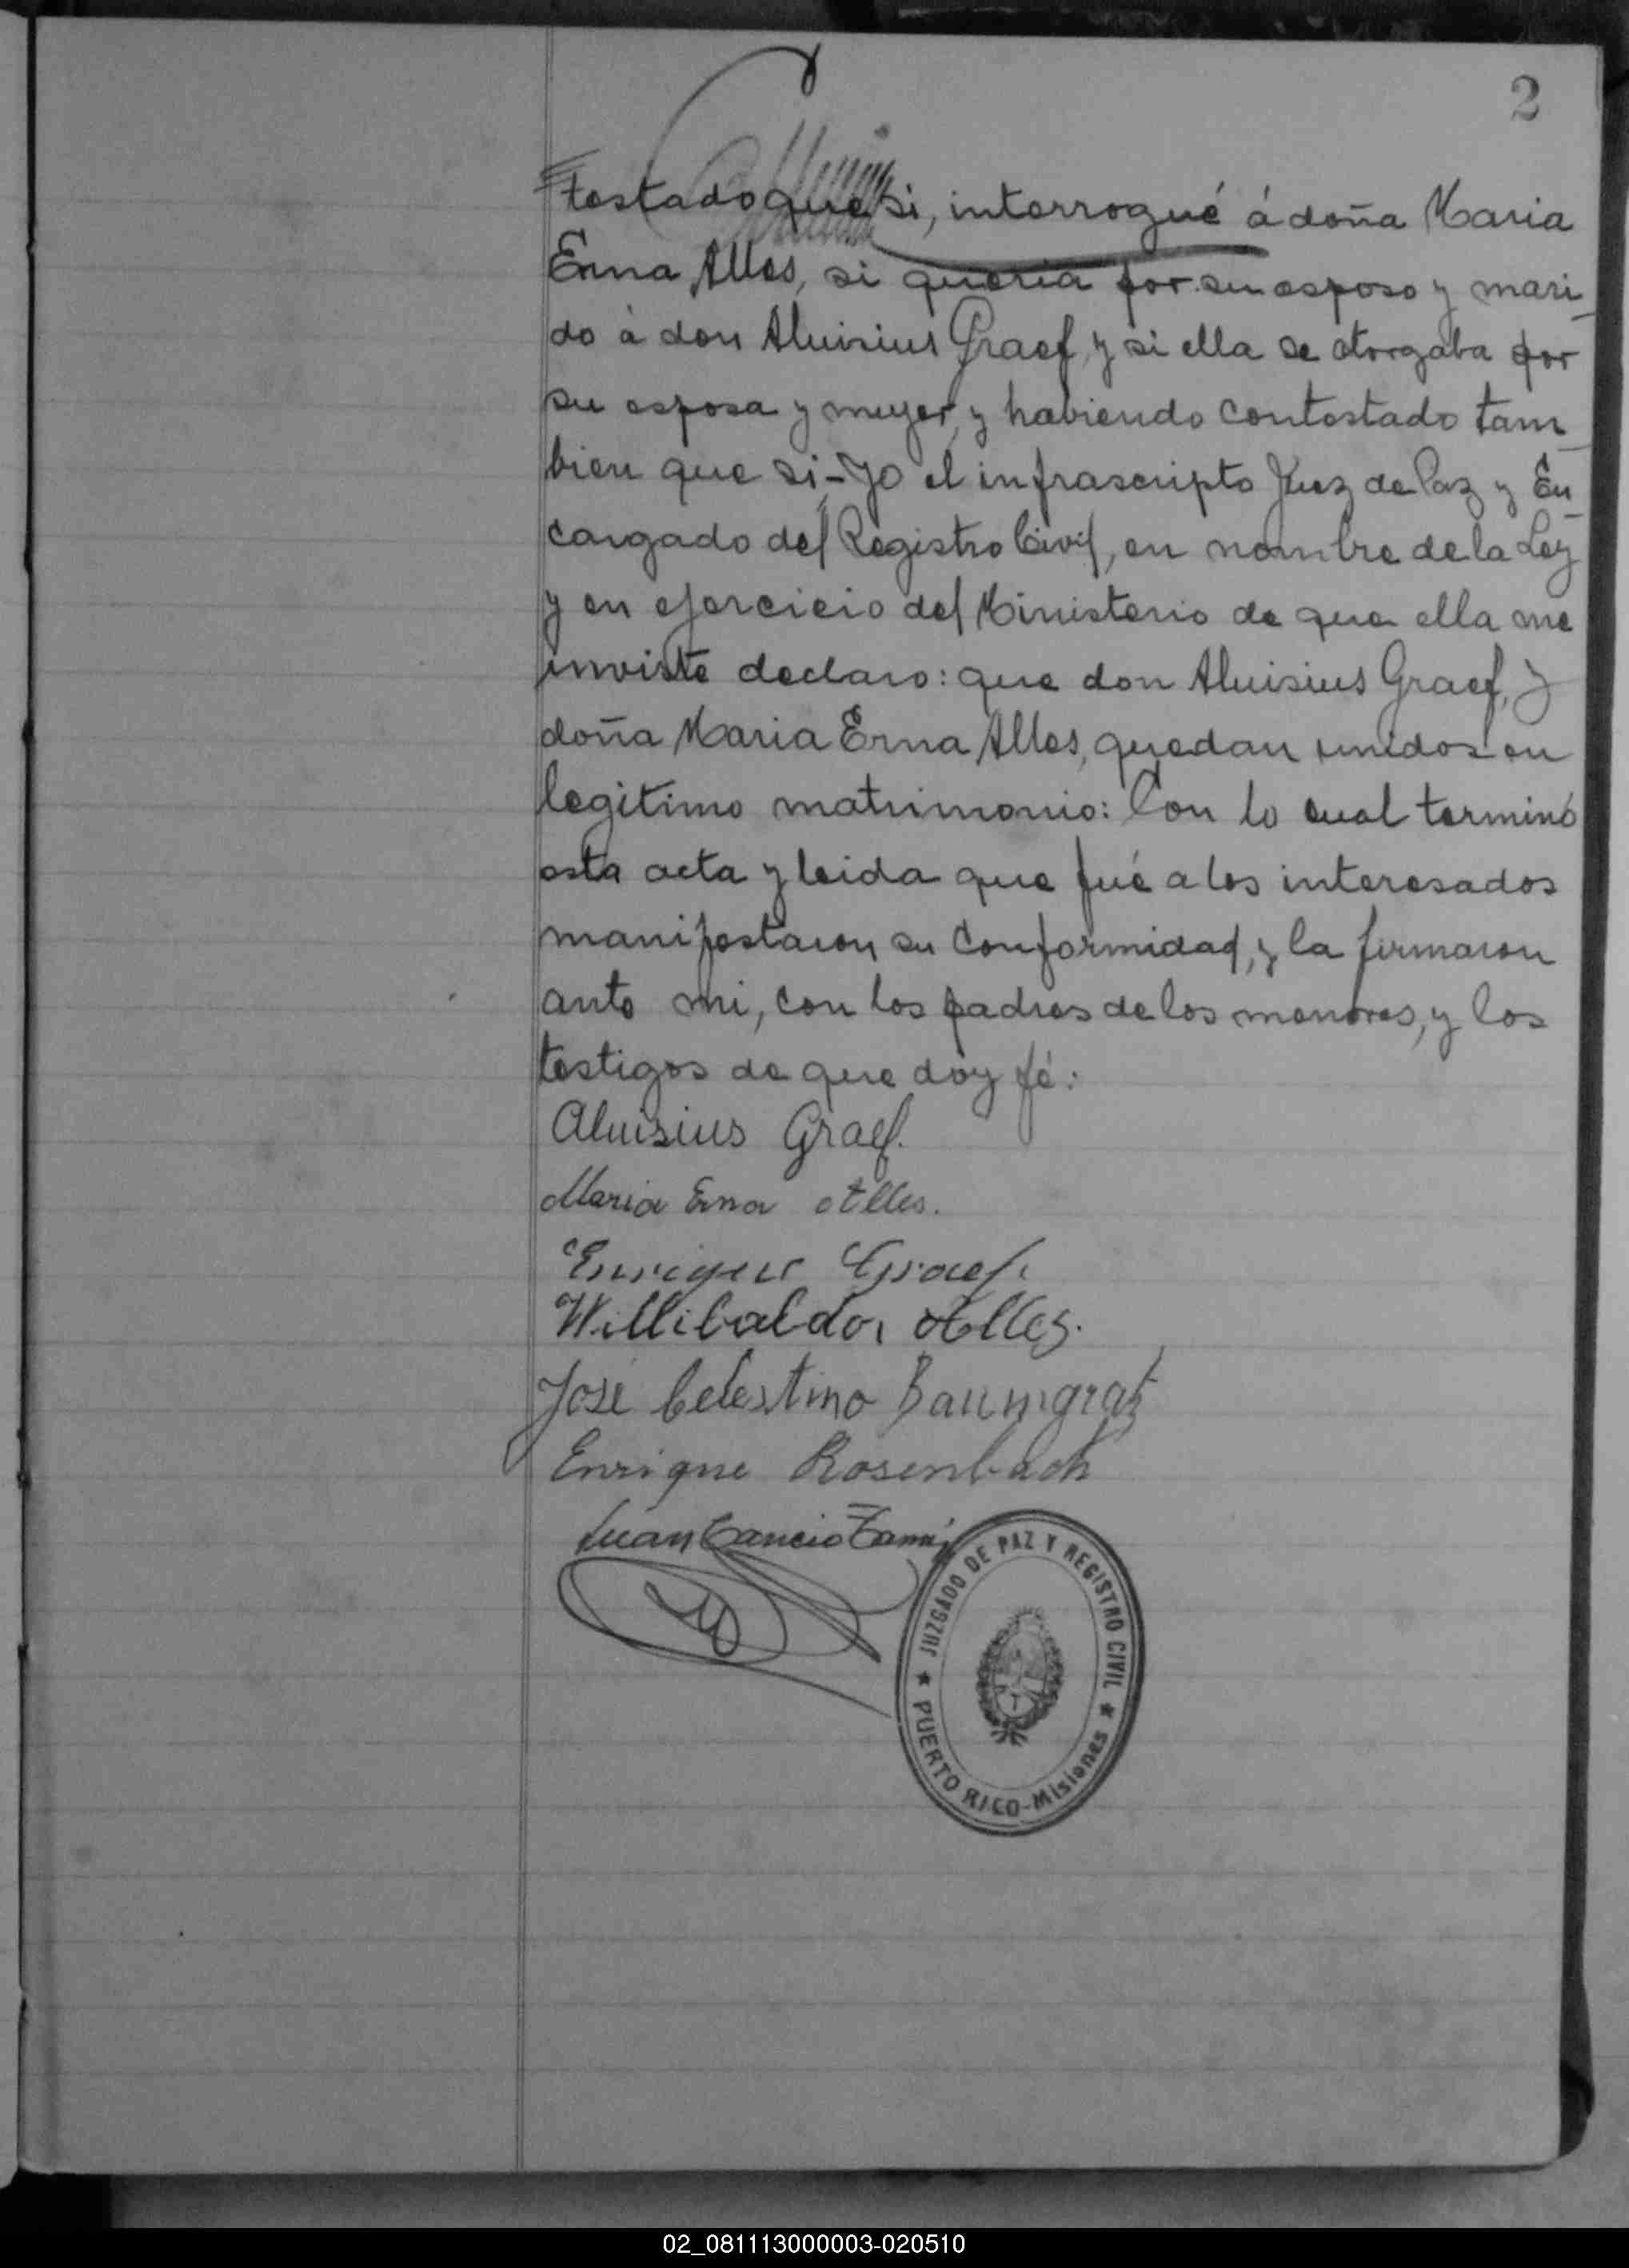 2
testado que si, interrogué á doña Maria
Erna Alles, si queria por su esposo y mari
do á don Aluisius Graef, y si ella se otorgaba por
su esposa y mujer, y habiendo contestado tam
bien que si-Yo el infrascripto Juez de Paz y En
cargado del Registro Civil, en nombre de la Ley
y en ejercicio del Ministerio de que ella me
inviste declaro: que don Aluisius Graef, y
doña Maria Erna Alles, quedan unidos en
legitimo matrimonio: Con lo cual terminó
esta acta y leida que fué a los interesados
manifestaron su conformidad, y la firmaron
ante mi, con los padres de los menores, y los
testigos de que doy fé:
Aluisius Graef.
Maria Erna Alles.
Enrique Graef.
Willibaldo, Alles.
José Celestino Baumgratz
Enrique Rosenbach
Juan Cancio
JUZGADO DE PAZ Y REGISTRO CIVIL
PUERTO RICO-Misiones
02_081113000003-020510